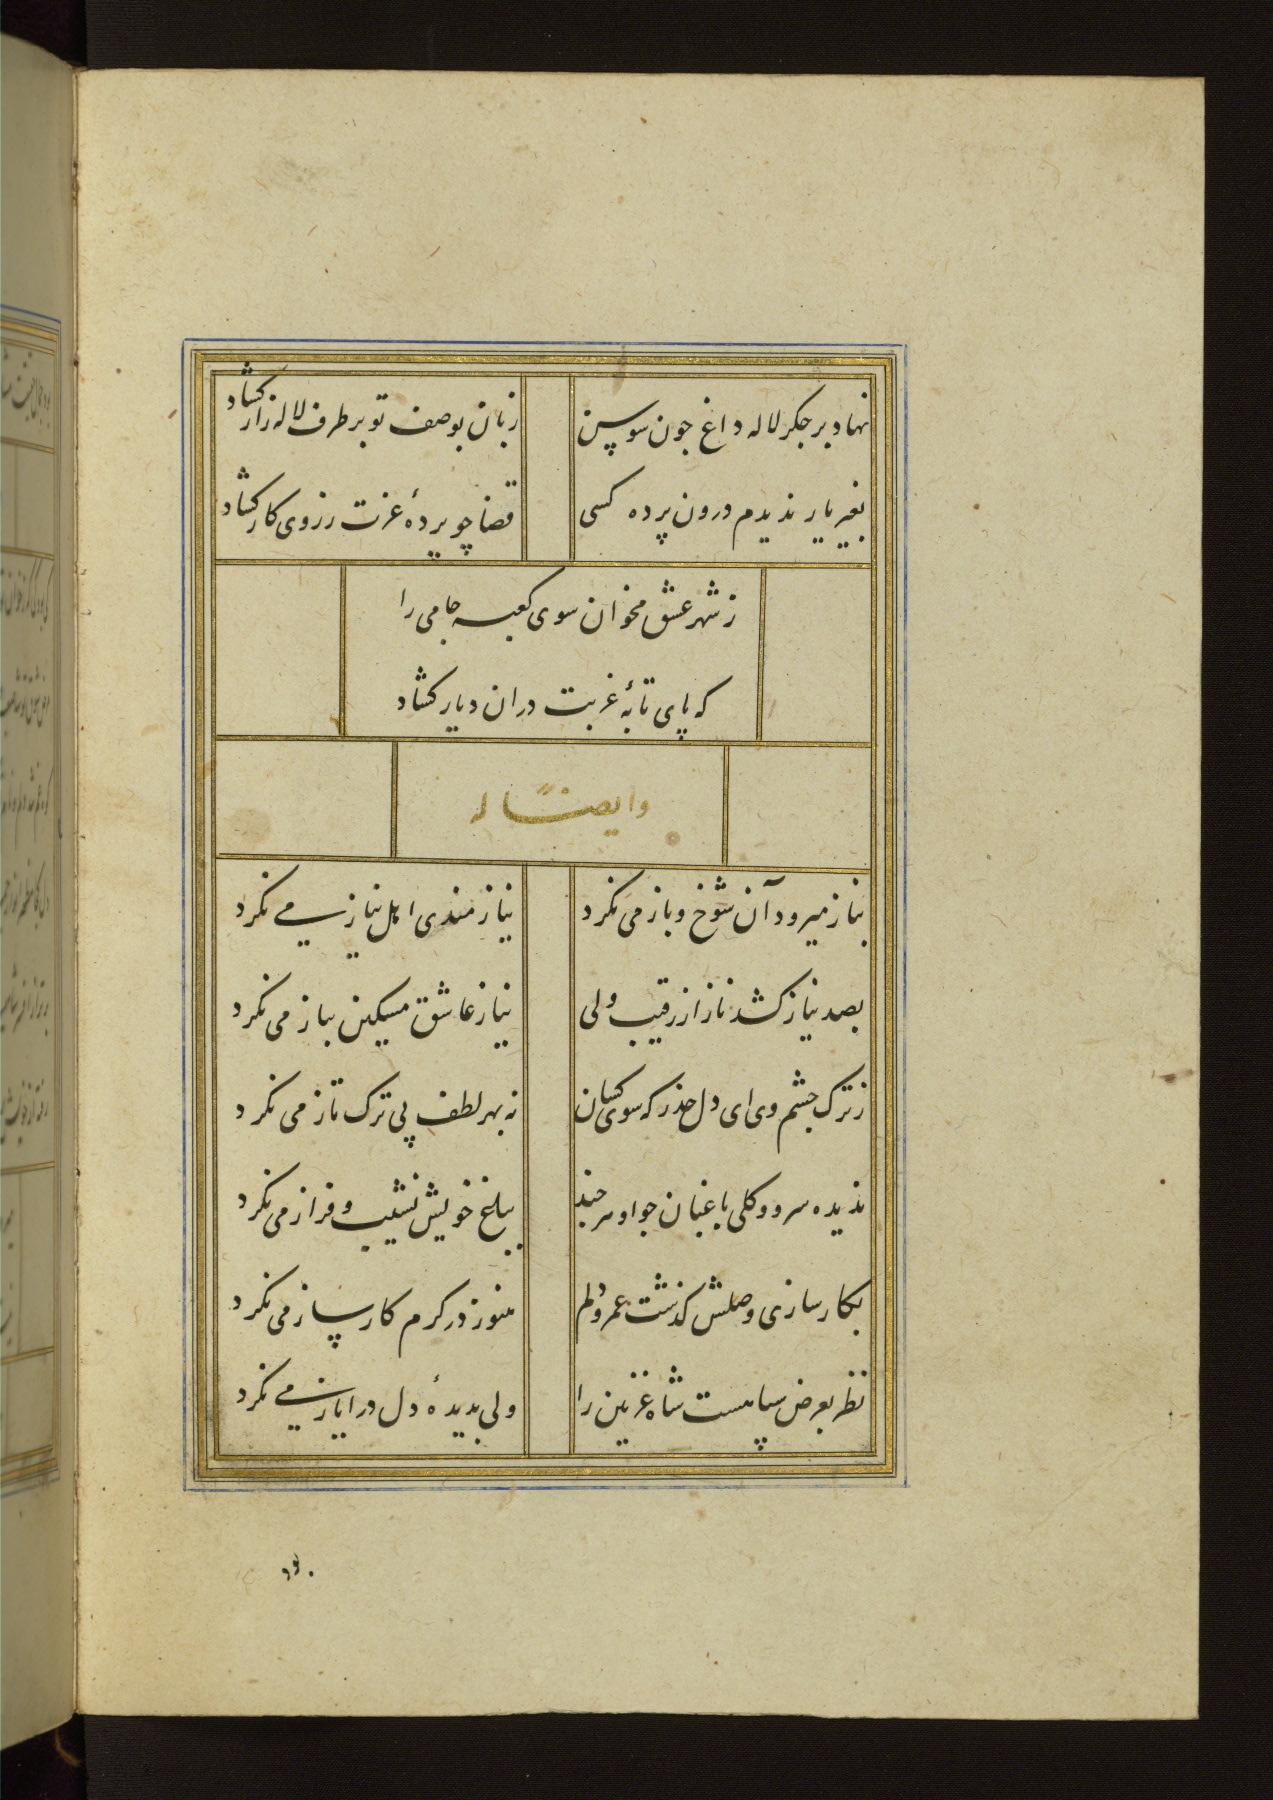 نهاد بر جکر لاله داغ جون سوسن
زبان بوصف تو بر طرف لاله زار کشاد
بغیر یار ندیدم درون پرده کسی
قضا چو پردهٔ عزت ز روی کار کشاد
ز شهر عشق مخوان سوی کعبه جامی را
که پای تابهٔ غربت دران دیار کشاد
وایضًا له
بناز میرود آن شوخ و باز می نکرد
نیازمندی اهل نیاز می نکرد
بصد نیاز کشد ناز از رقیب ولی
نیاز عاشق مسکین بناز می نکرد
ز ترک جشم وی ای دل حذر که سوی کسان
نه بهر لطف پی ترک تاز می نکرد
ندیده سرو و کلی باغبان جو او هر جند
بباغ خویش نشیب و فراز می نکرد
بکار سازی وصلش کذشت عمر و دلم
هنوز در کرم کارساز می نکرد
نظر بعرض سپاهست شاه غزنین را
ولی بدیدهٔ دل در ایاز می نکرد